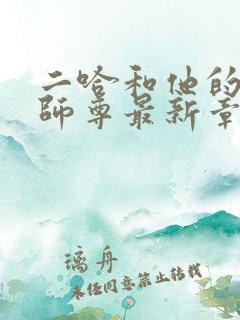 二哈和他的
師尊最新章
璃舟
未经同意禁止转载